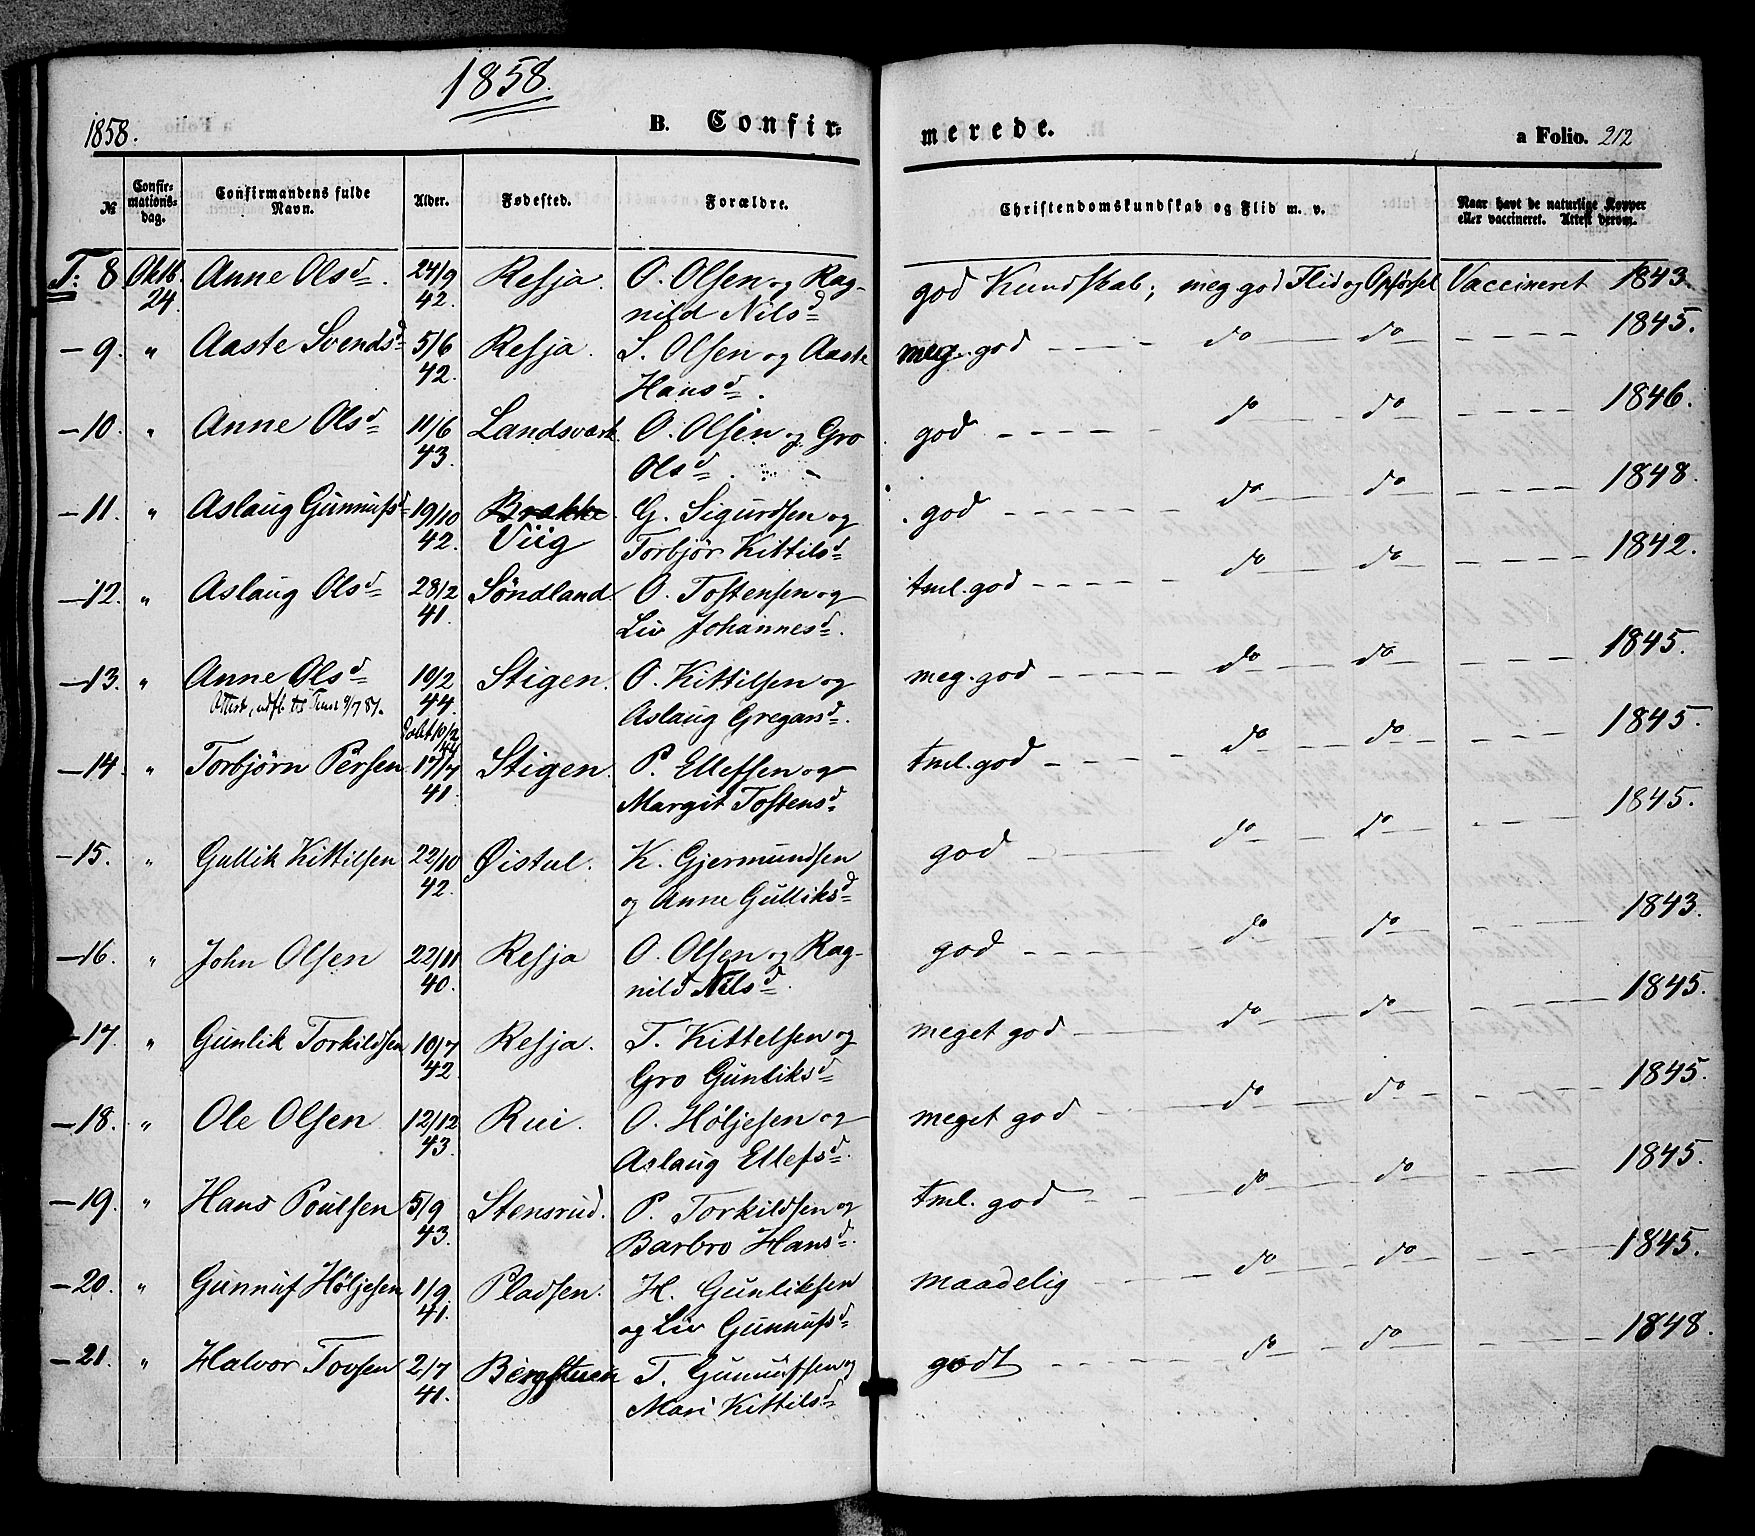 1858.
1858.
B. Confir-
merede.
a Folio. 212
№
Confir-
mations-
dag.
Confirmandens fulde
Navn.
Alder.
Fødested.
Forældre.
Christendomskundskab og Flid m. v.
Naar havt de naturlige Kopper
eller vaccineret. Attest derom.
T: 8 Oktb. Anne Olsd. 24/9 Resja. O. Olsen og Rag- god Kundskab; meg god Flid og Opførsel Vaccineret 1843.
24. 42. nild Nilsd
- 9. " Aaste Svendsd 5/6 Resja. S. Olsen og Aaste meg. god do do 1845.
42. Hansd.
- 10. " Anne Olsd 11/6 Landsværk O. Olsen og Gro god do do 1846.
43. Olsd.
- 11. " Aslaug Gunnufsd 19/10 Brække G. Sigurdsen og god do do 1848.
42. Viig Torbjør Kittilsd
- 12. " Aslaug Olsd 28/2 Söndland O. Tostensen og tml. god do do 1842.
41. Liv Johannesd.
- 13. " Anne Olsd 10/2 Stigen. O. Kittilsen og meg. god do do 1845.
Attest, udst. til 9/7 87. 44. Aslaug Gregarsd.
10/2
44
- 14. " Torbjørn Persen 17/7 Stigen. P. Ellefsen og tml. god do do 1845.
41. Margit Tostensd
- 15. " Gullik Kittilsen 22/10 Øistul. K. Gjermundsen god do do 1845.
42. og Anne Gulliksd
- 16. " John Olsen 22/11 Resja O. Olsen og Rag- god do do 1843.
40. nild Nilsd.
- 17. " Gunlik Torkildsen 10/7 Resja. T. Kittelsen og meget god do do 1845.
42 Gro Gunliksd
- 18. " Ole Olsen 12/12 Rui. O. Höljesen og meget god do do 1845.
43. Aslaug Ellefsd.
- 19. " Hans Poulsen 5/9 Stensrud. P. Torkildsen og tml. god do do 1845.
43. Barbro Hansd.
- 20. " Gunnuf Höljesen 1/9 Pladsen. H. Gunliksen maadelig do do 1845.
41. og Liv Gunnufsd
- 21. " Halvor Tovsen 2/7 Bergstuen T. Gunnufsen og godt do do 1848.
41. Mari Kittilsd